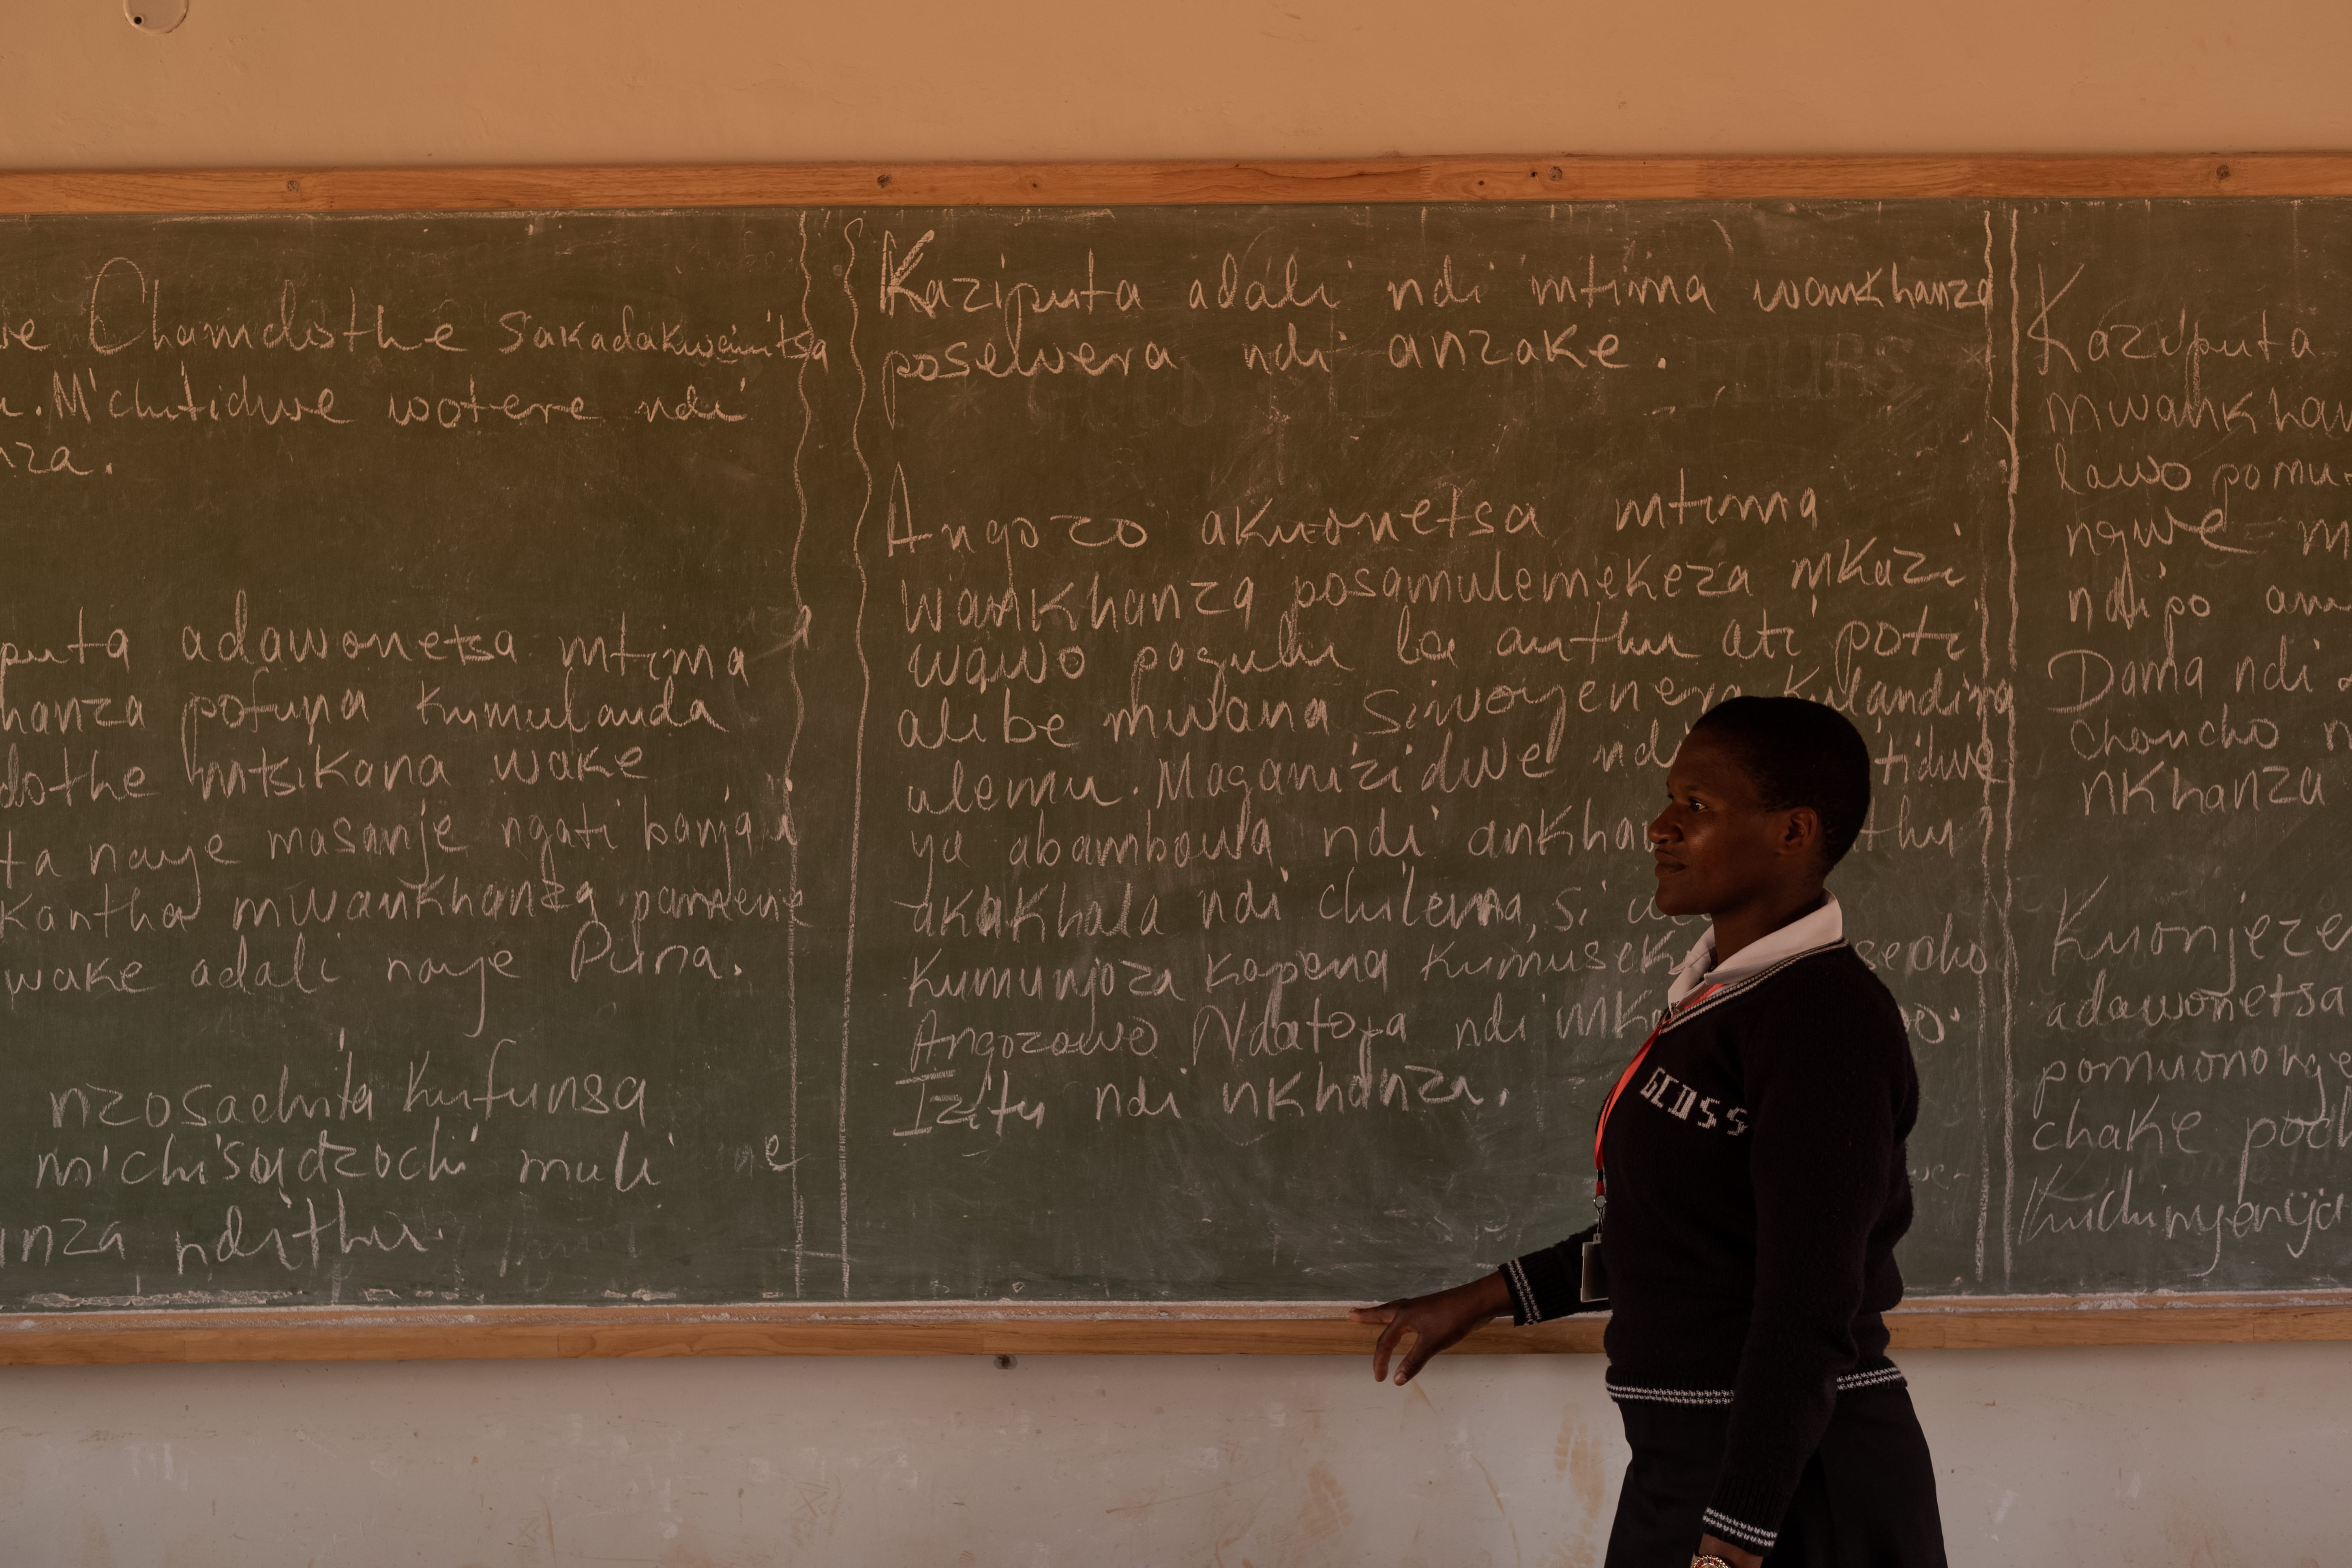 ve Chamdothe sakadakwanitsa
u. M'chitidwe wotere ndi
nza.
puta adawonetsa mtima
hanza pofuna kumulanda
dothe mtsikana wake
ta naye masanje ngati banja
kantha mwankhanza pamene
wake adali naye Puna.
nzosachita kufunsa
m'chisadzochi muli ne
anza ndithu.
Kaziputa adali ndi mtima wankhanza
poselvera ndi anzake.
Angozo akuonetsa mtima
wankhanza posamulemekeza mkazi
wawo pagulu la anthu ati poti
alibe mwana siwoyenera kulandira
ulemu. Maganizidwe ndi tidwe
ya abambowa ndi ankha thu
akakhala ndi chilema, si
kumunjoza kapena kumusek sepho
Angozowo Ndatopa ndi mk o.
Izitu ndi nkhanza.
GCDSS
Kaziputa
mwankhan
lawo pomu
ngwe m
ndipo am
Dama ndi
choncho n
nkhanza
Kuonjeze
adawonetsa
pomuononge
chake pod
kuchinyenja